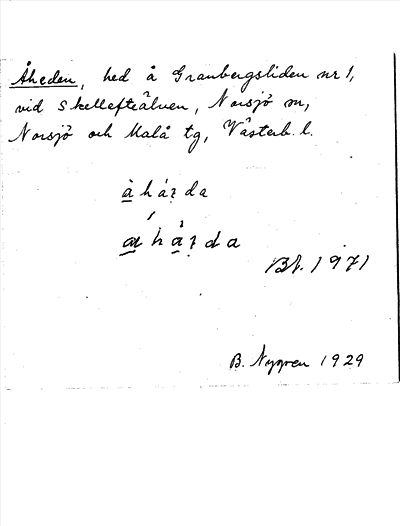 Åheden, hed å Granbergsliden nr 1,
vid Skellefteälven, Norsjö sn,
Norsjö och Malå tg, Västerb. l.
Bf. 1971
B. Nygren 1929